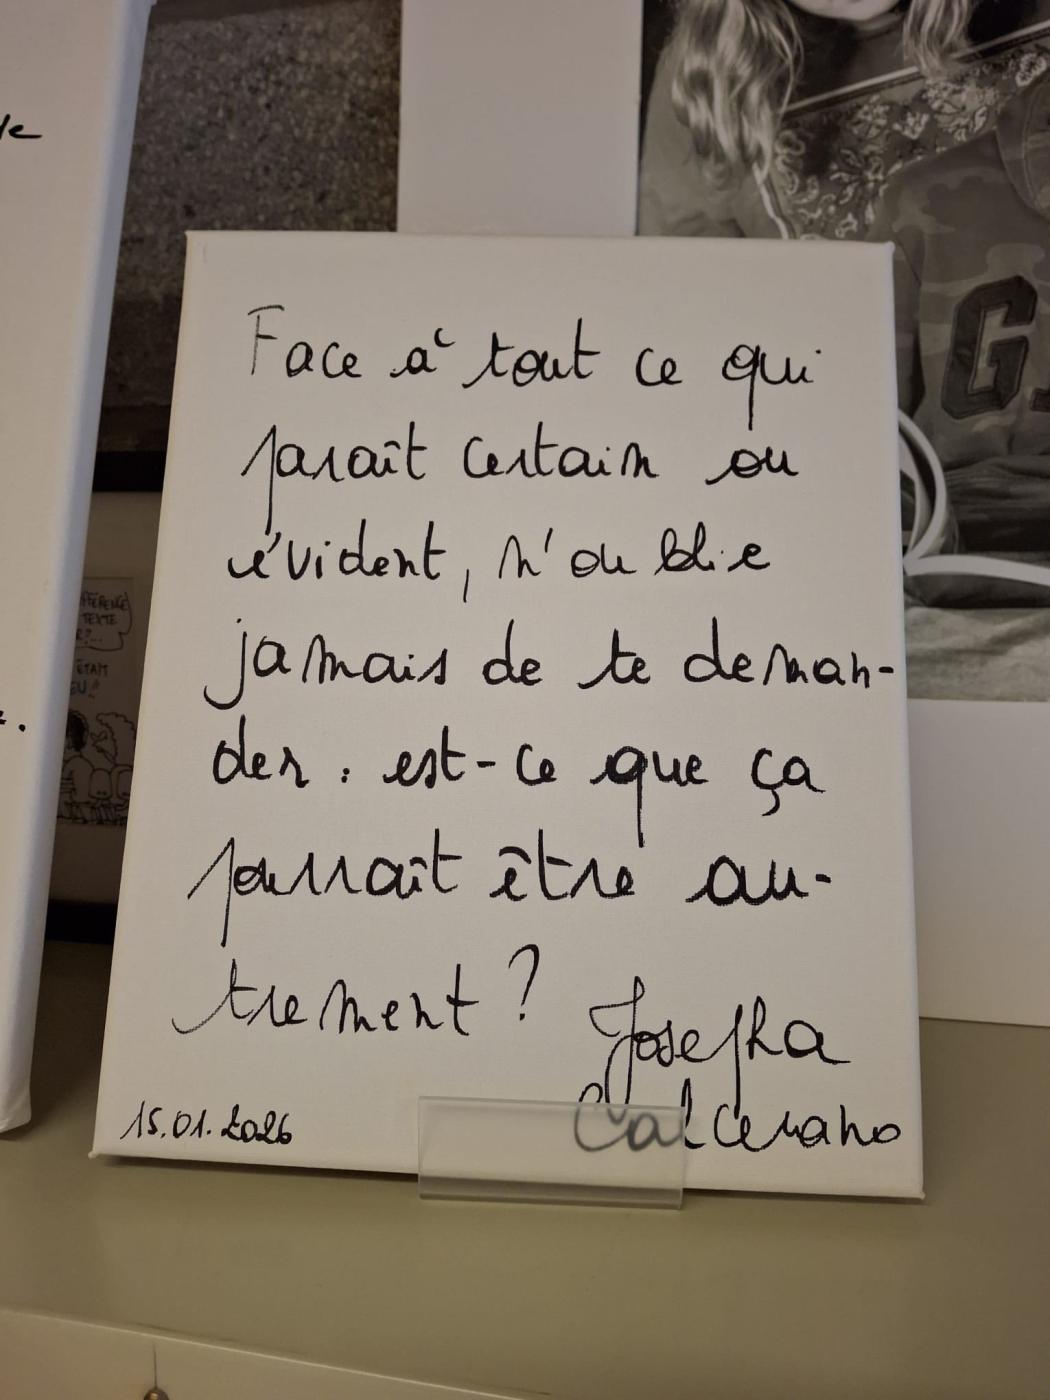 Face à tout ce qui
paraît certain ou
évident, n'oublie
jamais de te deman-
der : est-ce que ça
pourrait être au-
trement ?
Josepha
Calcerano
15.01.2026
TEXTE
G